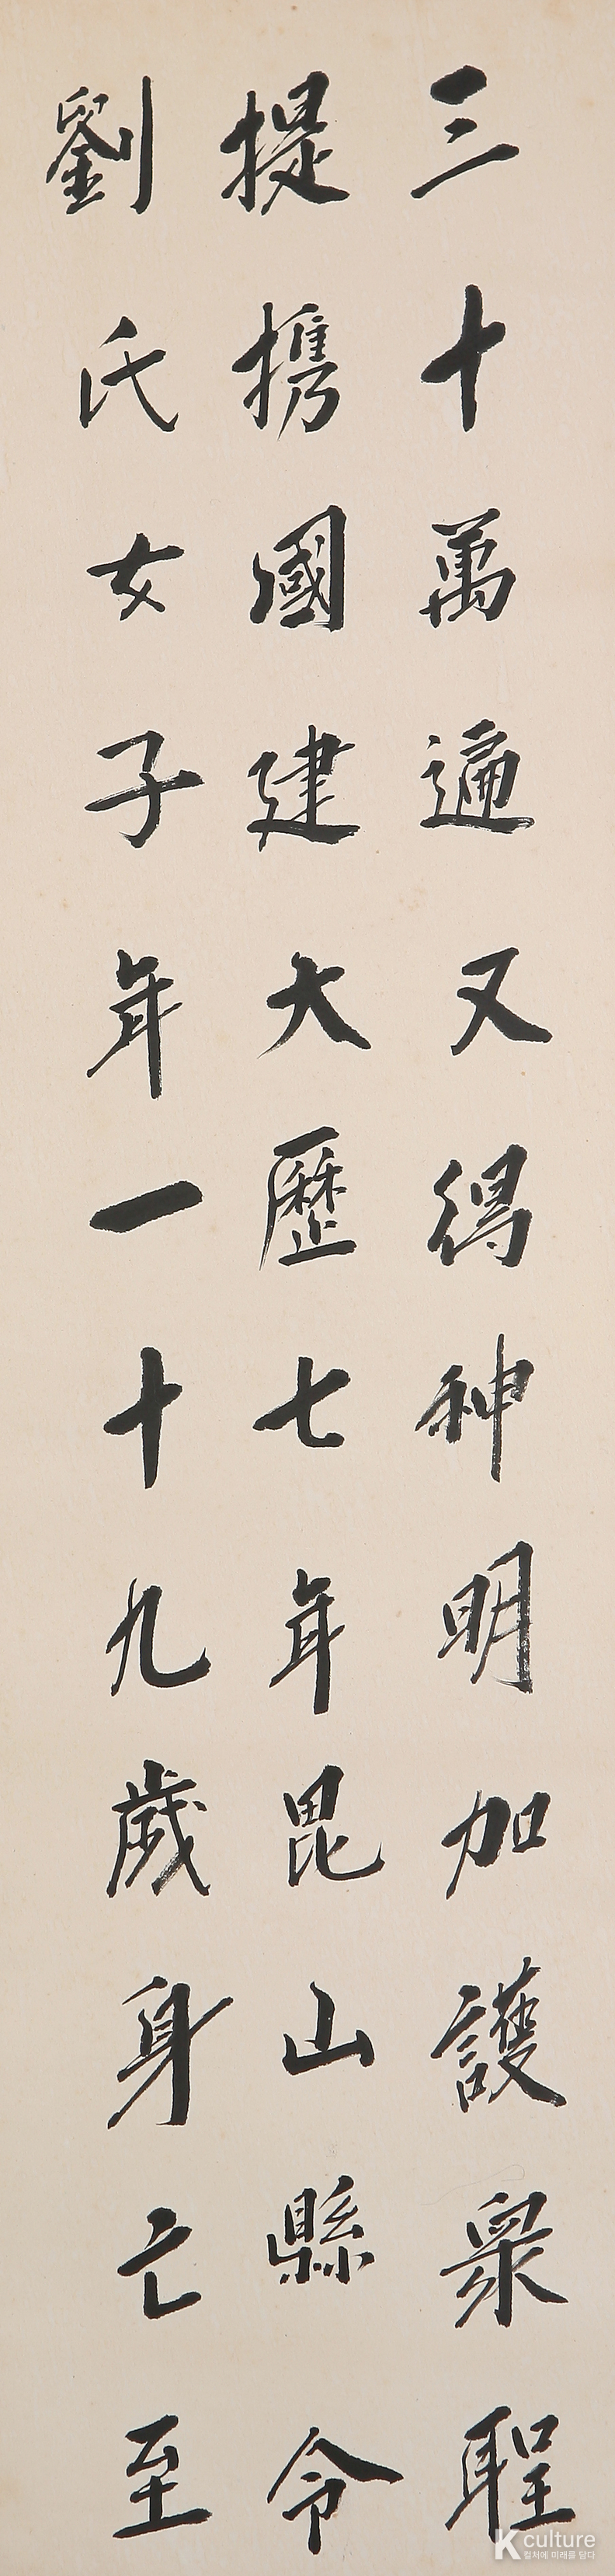 三十萬遍又得神明加護衆聖
提携國建大歷七年毘山縣令
劉氏女子年一十九歲身亡至
K culture
컬처에 미래를 담다